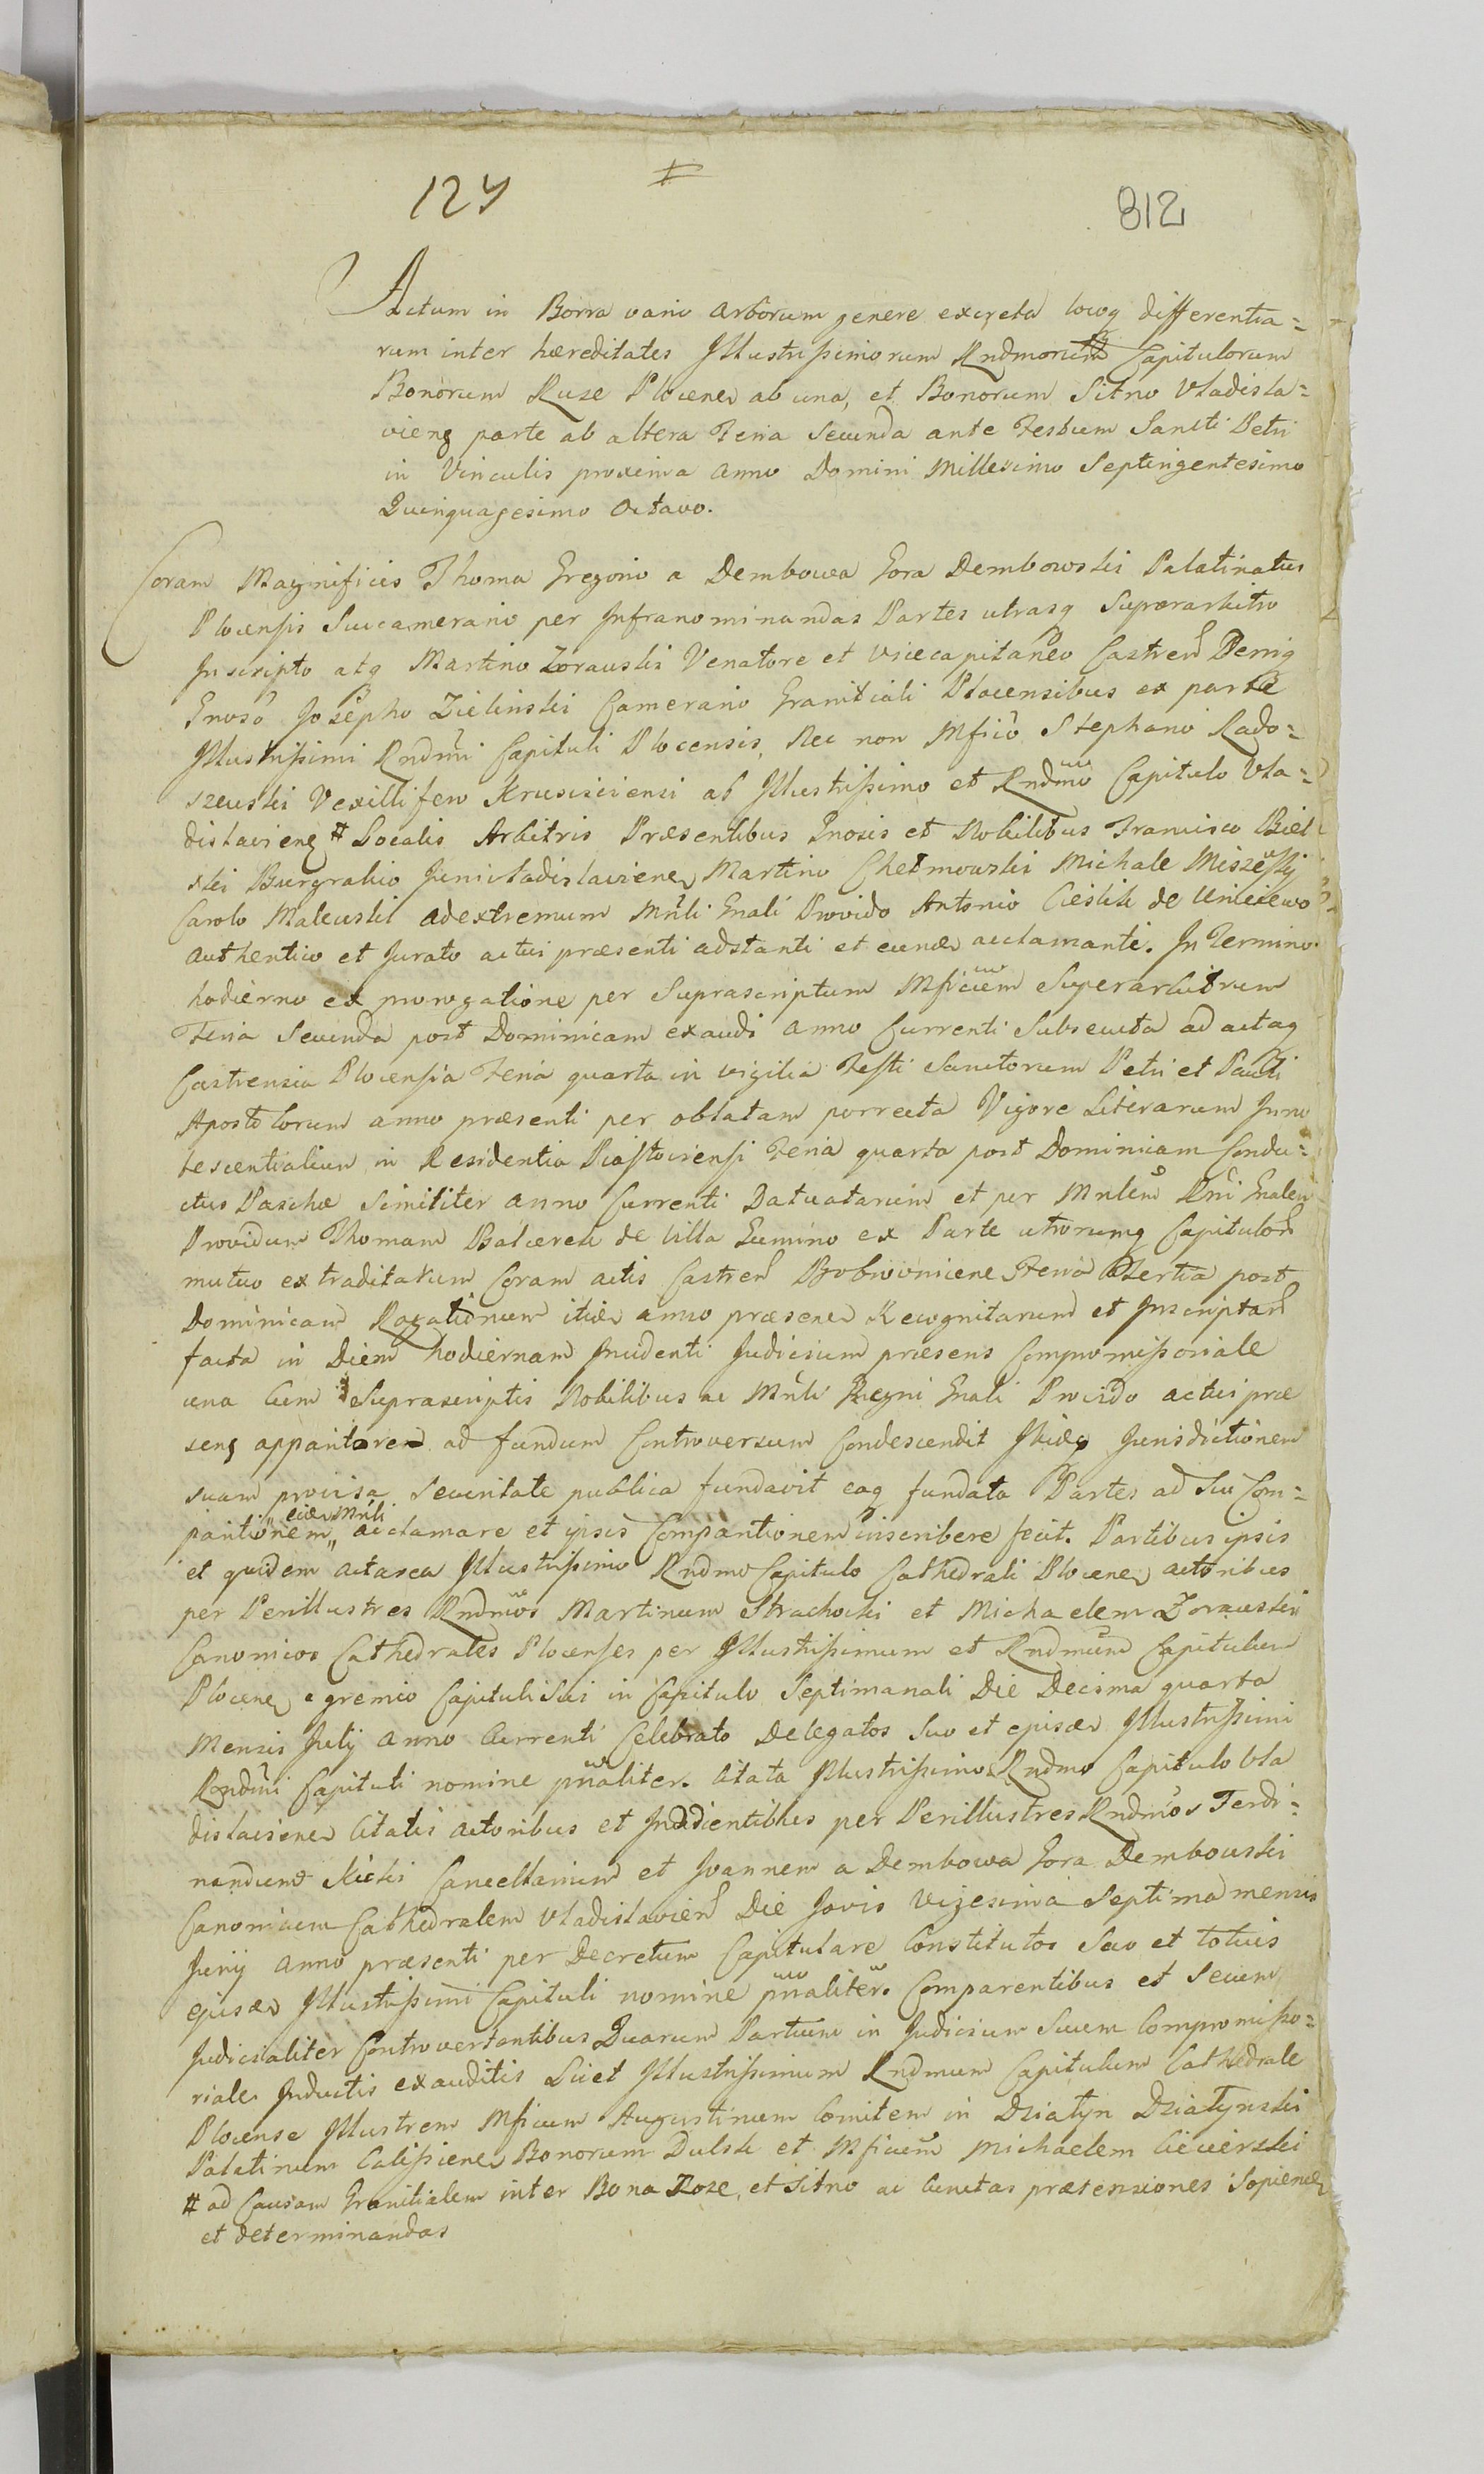 124 #
812
Actum in Borra vario Arborum genere excreta locoq differentia=
rum inter hæreditates Jllustrissimorum Rndmorum Capitulorum
Bonorum Ruze Plocen ab una, et Bonorum Sitno Vladisla=
viens parte ab altera Feria Secunda ante Festum Sancti Petri
in Vinculis proxima Anno Domini Millesimo Septingentesimo
Quinquagesimo Octavo.
Coram Magnificis Thoma Gregorio a Dembowa Gora Dembowski Palatinatus
Plocensis Succamerario per Jnfranominandas Partes utrasq Superarbitro
Jnscripto atq Martino Zorawski Venatore et vicecapitaneo Castren
Gnoso Josepho Zielinski Camerario Granitiali Plocensibus ex parte
Jllustrissimi Rndmi Capituli Plocensis, Nec non Mfico Stephano Rado=
szewski Vexillifero Krusviciensi ab Jllustrissimo et Rndmo Capitulo Vla=
dislaviens # Localis Arbitris Præsentibus Gnosis et Nobilibus Francisco Biel
ski Burgrabio Junivladislavien Martino Chełmowski Michale
Carolo Malewski adextremum Mrli Gnali Provido Antonio Cieslik de Unieiewo
Authentico et Jurato actui præsenti adstanti et eund acclamanti. Jn Termino
hodierno ex prorogatione per Suprascriptum Mficum Superarbitrum
Feria Secunda post Dominicam exaudi anno Currenti Subsecuta ad actaq
Castrensia Plocensia Feria quarta in vigilia Festi Sanctorum Petri et Pauli
Apostolorum anno præsenti per oblatam porrecta Vigore Literarum Jnno
tescentialium in Residentia feria quarta post Dominicam Condu=
ctus Paschæ Similiter Anno Currenti Datuatarum et per Mrlem Rni Gnalem
Providum Thomam Balcerek de Villa Gumino ex Parte utrorumq Capitulor
mutuo extraditarum Coram actis Castren Bobrovnicens Feria Tertia post
Dominicam Rogationum itid anno præsen Recognitarum et Jnscriptar
facta in Diem hodiernam Jncidenti Judicium præsens Compromissoriale
una Cum Suprascriptis Nobilibus ac Mrli Regni Gnali Provido actui præ
sens apparitore ad fundum Controversum Condescendit Jbidq Jurisdictionem
suam provisa Securitate publica fundavit eaq fundata Partes ad Sui Com=
paritionem „eund Mrli„ acclamare et ipsis Comparitionem inscribere fecit. Partibus ipsis
et quidem actorea Jllustrissimo Rndmo Capitulo Cathedrali Plocen actoribus
per Perillustres Rndmos Martinum Strachocki et Michaelem Zorawski
Canonicos Cathedrales Plocenses per Jllustrissimum et Rndmum Capitulum
Plocen e gremio Capituli Sui in Capitulo Septimanali Die Decima quarta
Mensis Julij Anno Currenti Celebrato Delegatos Suo et ejusd Jllustrissimi
Rndmi Capituli nomine pnaliter. Citata Jllustrissimo Rndmo Capitulo Vla
dislavien Citatis actoribus et Jncidentibus per Perillustres Rndmos Ferdi=
nandum Kicki Cancellarium et Joannem a Dembowa Gora Dembowski
Canonicum Cathedralem Vladislavien Die Jovis Vigesima Septima mensis
Junij anno præsenti per Decretum Capitulare Constitutos Suo et totius
ejusd Jllustrissimi Capituli nomine pnaliter. Comparentibus et Secum
Judicialiter Controvertantibus Quarum Partium in Judicium Suum Compromisso=
riale Jnductis exauditis Licet Jllustrissimum Rndmum Capitulum Cathedrale
Plocense Jllustrem Mficum Augustinum Comitem in Działyn Działynski
Palatinum Calissien Bonorum Dulsk et Mficum Michaelem Ciecierski
# ad Causam Granitialem inter Bona Roze, et Sitno ac Cunctas prætensiones Sopiend
et determinandas